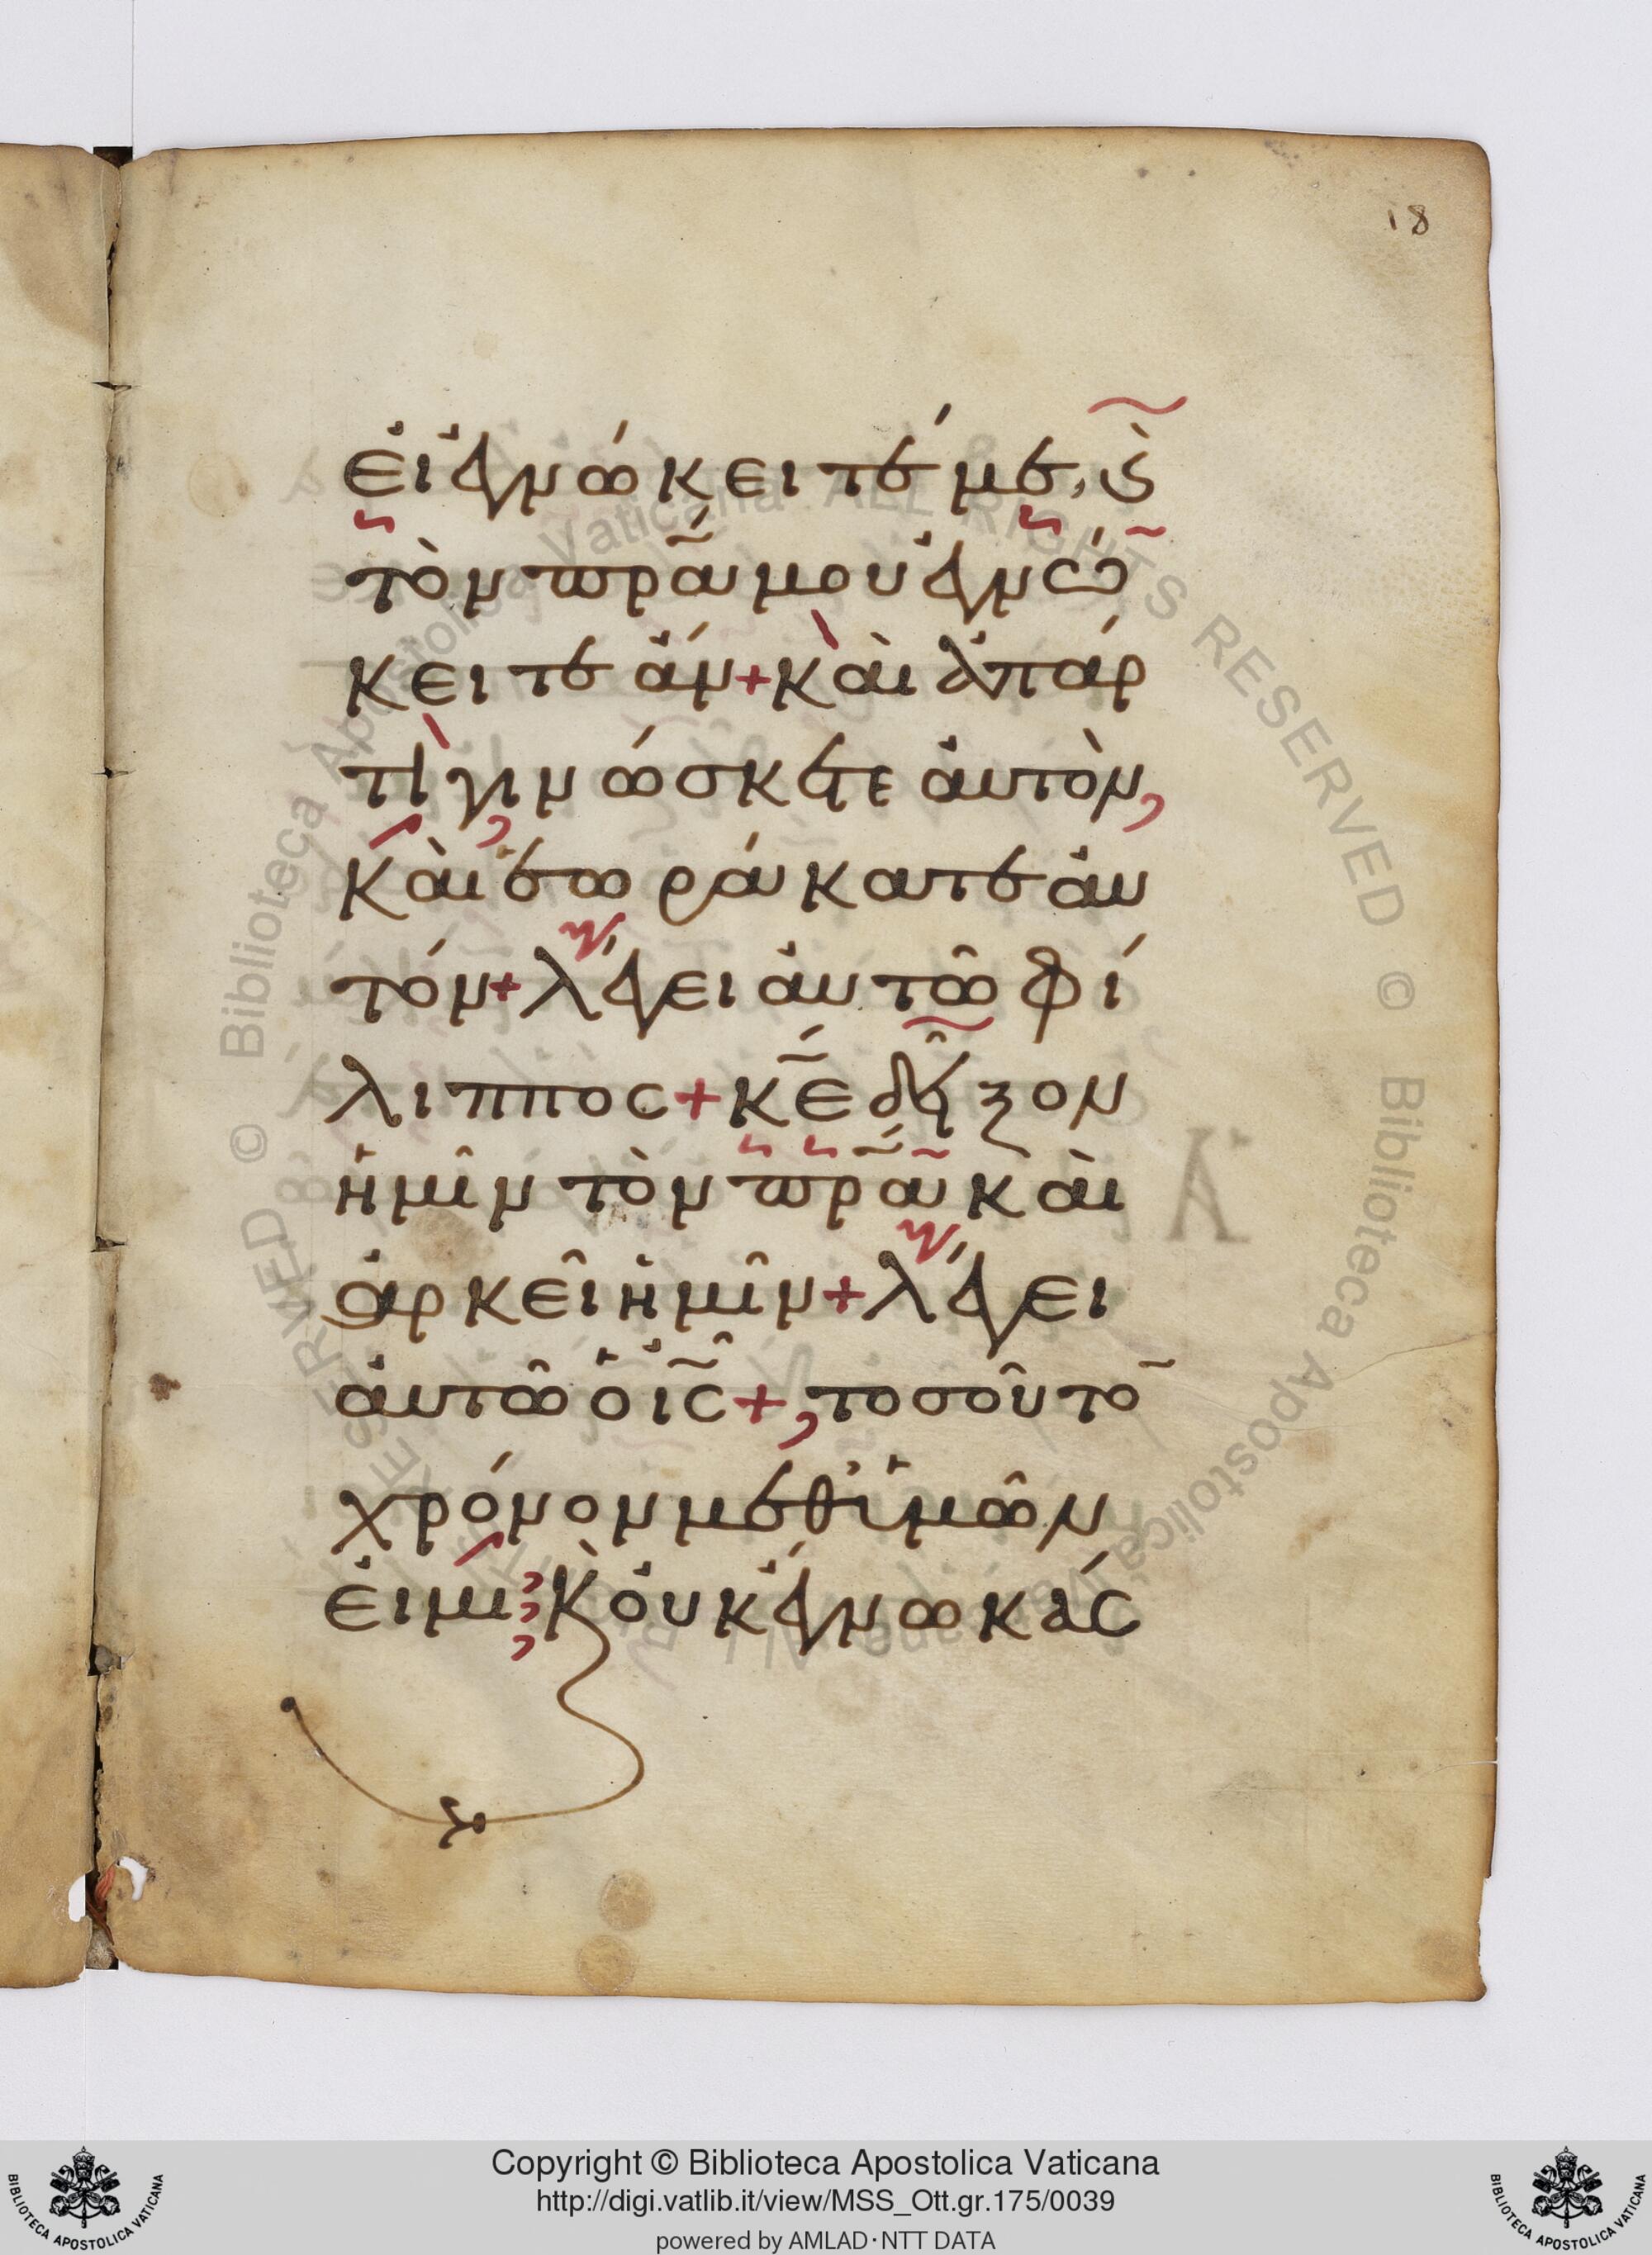 18
εἰ ἐγνώκειτέ με, (καὶ)
τὸν πρ̅α̅ μου ἐγνώ
κειτε ἄν + καὶ ἀπάρ
τι γινώσκετε αὐτὸν,
καὶ ἑωράκατε αὐ
τόν + λέγει αὐτῶ φί
λιππος + κ̅ε̅ δεῖξον
ἡμῖν τὸν πρ̅α̅ καὶ
ἀρκεῖ ἡμῖν + λέγει
αὐτῶ ὁ ι̅ς̅ + τοσοῦτο̅
χρόνον μεθ' ὑμῶν
εἰμι κ(αὶ) οὐκ ἔγνωκάς
© Biblioteca Apostolica Vaticana ALL RIGHTS RESERVED © Biblioteca Apostolica Vaticana ALL RIGHTS RESERVED
Copyright © Biblioteca Apostolica Vaticana
http://digi.vatlib.it/view/MSS_Ott.gr.175/0039
powered by AMLAD·NTT DATA
BIBLIOTECA APOSTOLICA VATICANA
BIBLIOTECA APOSTOLICA VATICANA